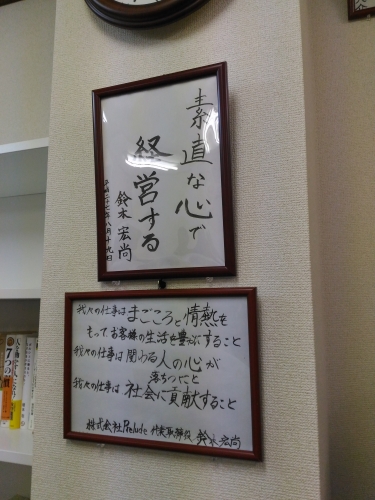 素直な心で
経営する
鈴木宏尚
平成二十七年八月十九日
我々の仕事はまごころと情熱を
もってお客様の生活を豊かにすること
我々の仕事は関わる人の心が
落ちつくこと
我々の仕事は社会に貢献すること
株式会社Prelude 代表取締役 鈴木宏尚
7つの習慣